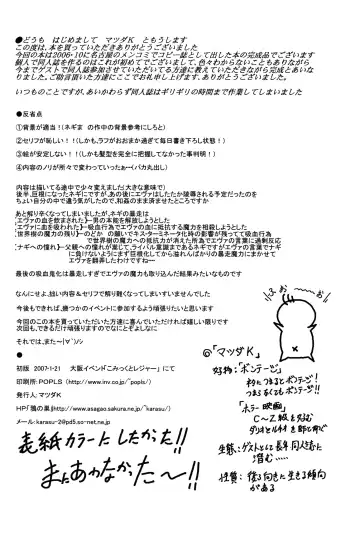 ●どうも　はじめまして　マツダK　ともうします
この度は、本を買っていただきありがとうございました
今回の本は2006・10に名古屋のメンコミでコピー誌として出した本の完成品でございます
個人で同人誌作るのはこれが初めてでございまして、色々わからないこともありながら
今までゲストで同人誌参加させていただいてる方達に教えていただきながら完成とあいな
りました、ご助言頂いた方達にここでお礼申し上げます、ありがとうございました。
いつものことですが、あいかわらず同人誌はギリギリの時間まで作業してしまいました
●反省点
①背景が適当！(ネギま　の作中の背景参考にしろと)
②セリフが恥しい！！(しかも、ラフがおおまか過ぎて毎日書き下ろし状態！)
③絵が安定しない！！(しかも髪型を完全に把握してなかった事判明！)
④内容のノリが所々で変わっていったぁ～(バカ丸出し)
内容は描いてる途中で少々変えました(大きな意味で)
後半、巨根になったネギにですが、あの後にエヴァはしたたか陵辱される予定だったのを
ちょい自分の中で違う気がしたので、和姦のまま済ませたところですか
あと解り辛くなってしまいましたが、ネギの暴走は
【エヴァの血を飲まされた】―男の本能を解放しようとした
【エヴァに血を吸われた】―吸血行為でエヴァの血に抵抗する魔力を相殺しようとした
【世界樹の魔力の残り】―のどか　の願いでキスターミネータ化時の影響が残ってて吸血行為
で世界樹の魔力への抵抗力が消えた所為でエヴァの言葉に過剰反応
【ナギへの憧れ】―父親への憧れが重じて、ライバル意識まであるためエヴァの言葉でナギ
に負けないようにまず巨根化してから溢れんばかりの暴走魔力にまかせて
エヴァを翻弄したわけですね―
最後の吸血鬼化は暴走しすぎでエヴァの魔力も取り込んだ結果みたいなものです
なんにせよ、拙い内容＆セリフで解り難くなってしまいすいませんでした
今後もできれば、幾つかのイベントに参加するよう頑張りたいと思います
今回のこの本を買っていただいた方達に喜んでいただければ嬉しい限りです
次回も、できるだけ頑張りますのでなにとぞよしなに
それでは、また～(´∀｀)ノシ
●
初版　2007・1・21　大阪イベント「こみっくとレジャー」　にて
印刷所：POPLS　(http://www.inv.co.jp/~popls/)
発行人：マツダK
HP「鴉の巣」(http://www.asagao.sakura.ne.jp/~karasu/)
メール：karasu-2@pd5.so-net.ne.jp
表紙カラーにしたかった!!
まにあわなかた～!!
◎「マツダK」
好物：「ボンデージ」
「ホラー映画」
C～Z級を好む
生態：ゲストとして長年同人者に
潜む……
性質：後ろ向きに生きる傾向
がある